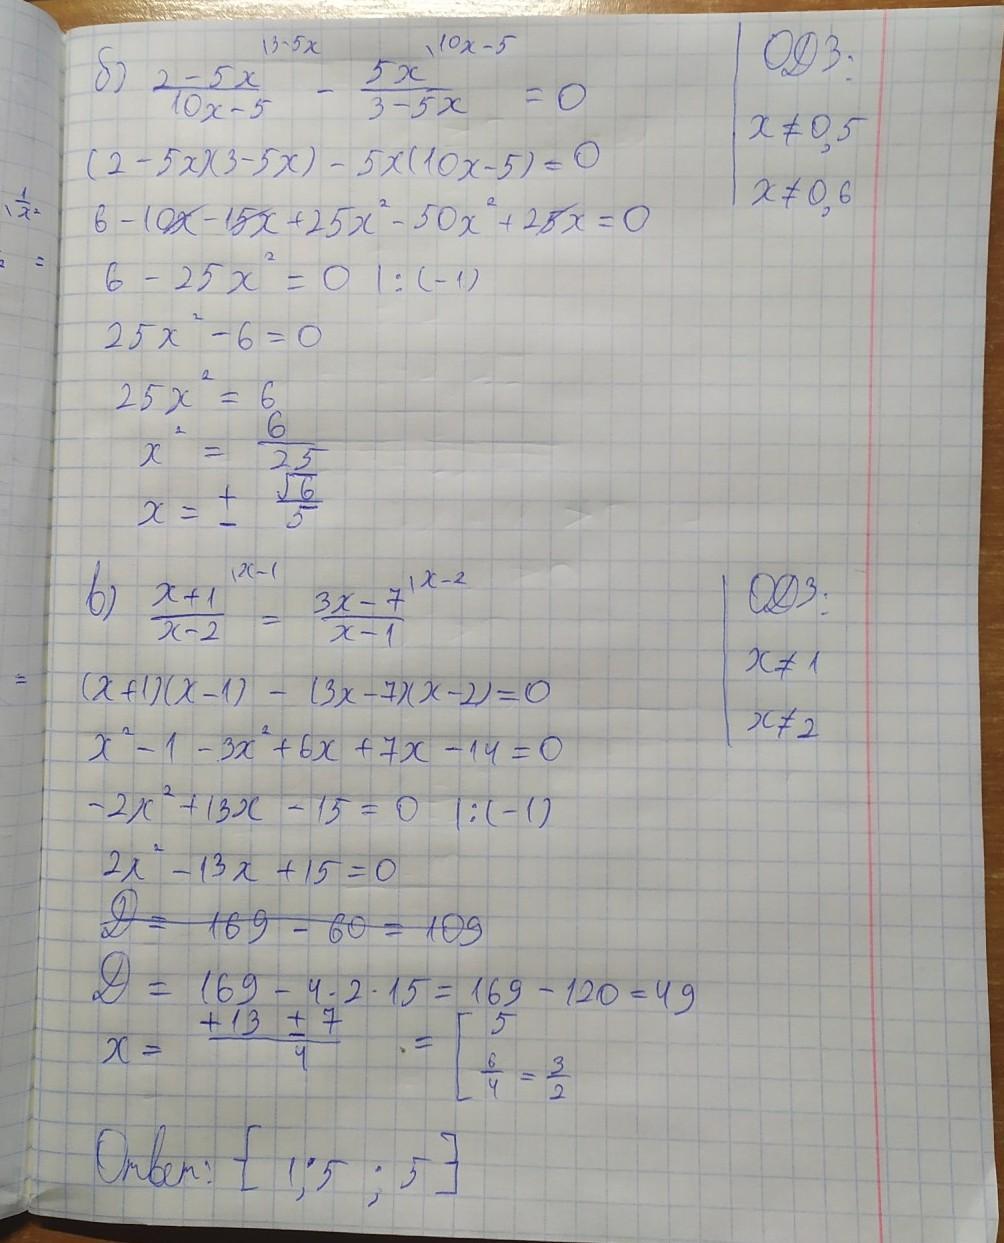 б) (2-5x)/(10x-5) \3-5x - 5x/(3-5x) \10x-5 = 0
ОДЗ:
x≠0,5
x≠0,6
(2-5x)(3-5x) - 5x(10x-5)=0
6-10x-15x+25x²-50x²+25x=0
6-25x²=0 |:(-1)
25x²-6=0
25x²=6
x² = 6/25
x = ± √6/5
в) (x+1)/(x-2) \x-1 = (3x-7)/(x-1) \x-2
ОДЗ:
x≠1
x≠2
(x+1)(x-1) - (3x-7)(x-2)=0
x²-1-3x²+6x+7x-14=0
-2x²+13x-15=0 |:(-1)
2x²-13x+15=0
D = 169-60=109
D = 169-4·2·15=169-120=49
x = (+13±7)/4 = [5
6/4 = 3/2
Ответ: {1,5 ; 5}
1/x²
=
=